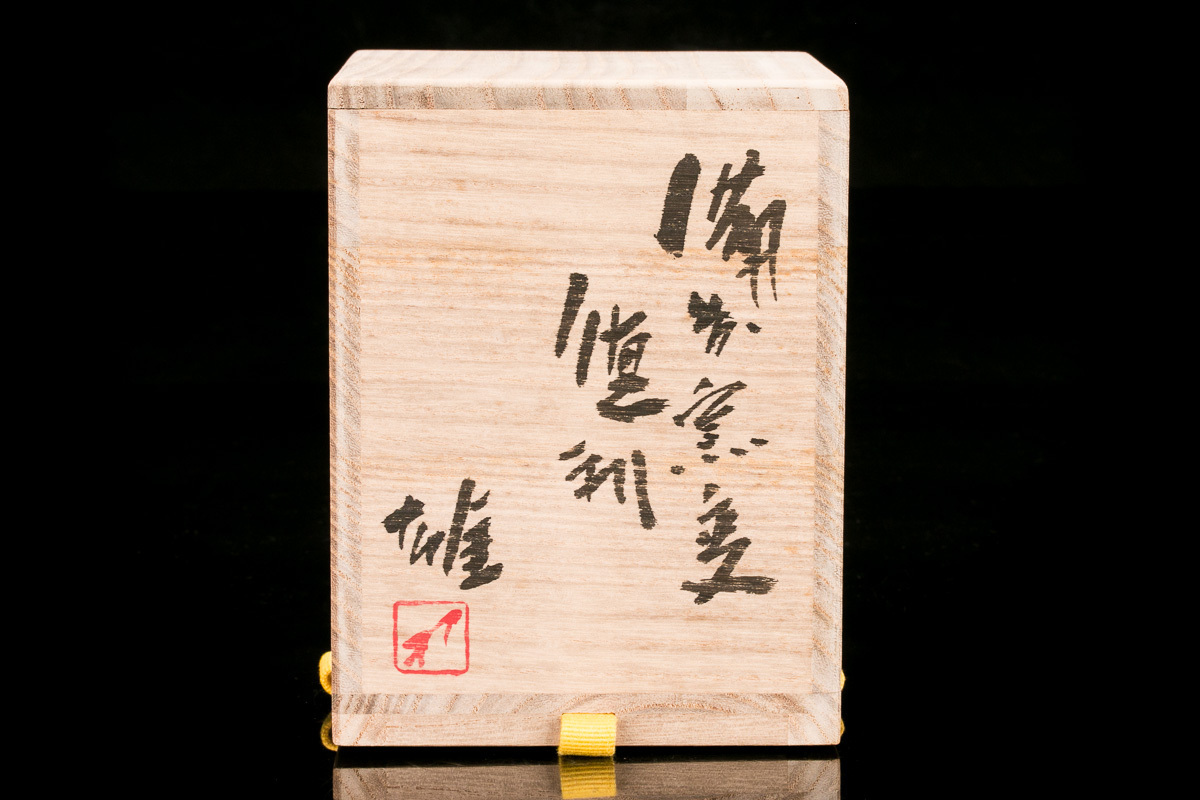 備前窯変
徳利
雄